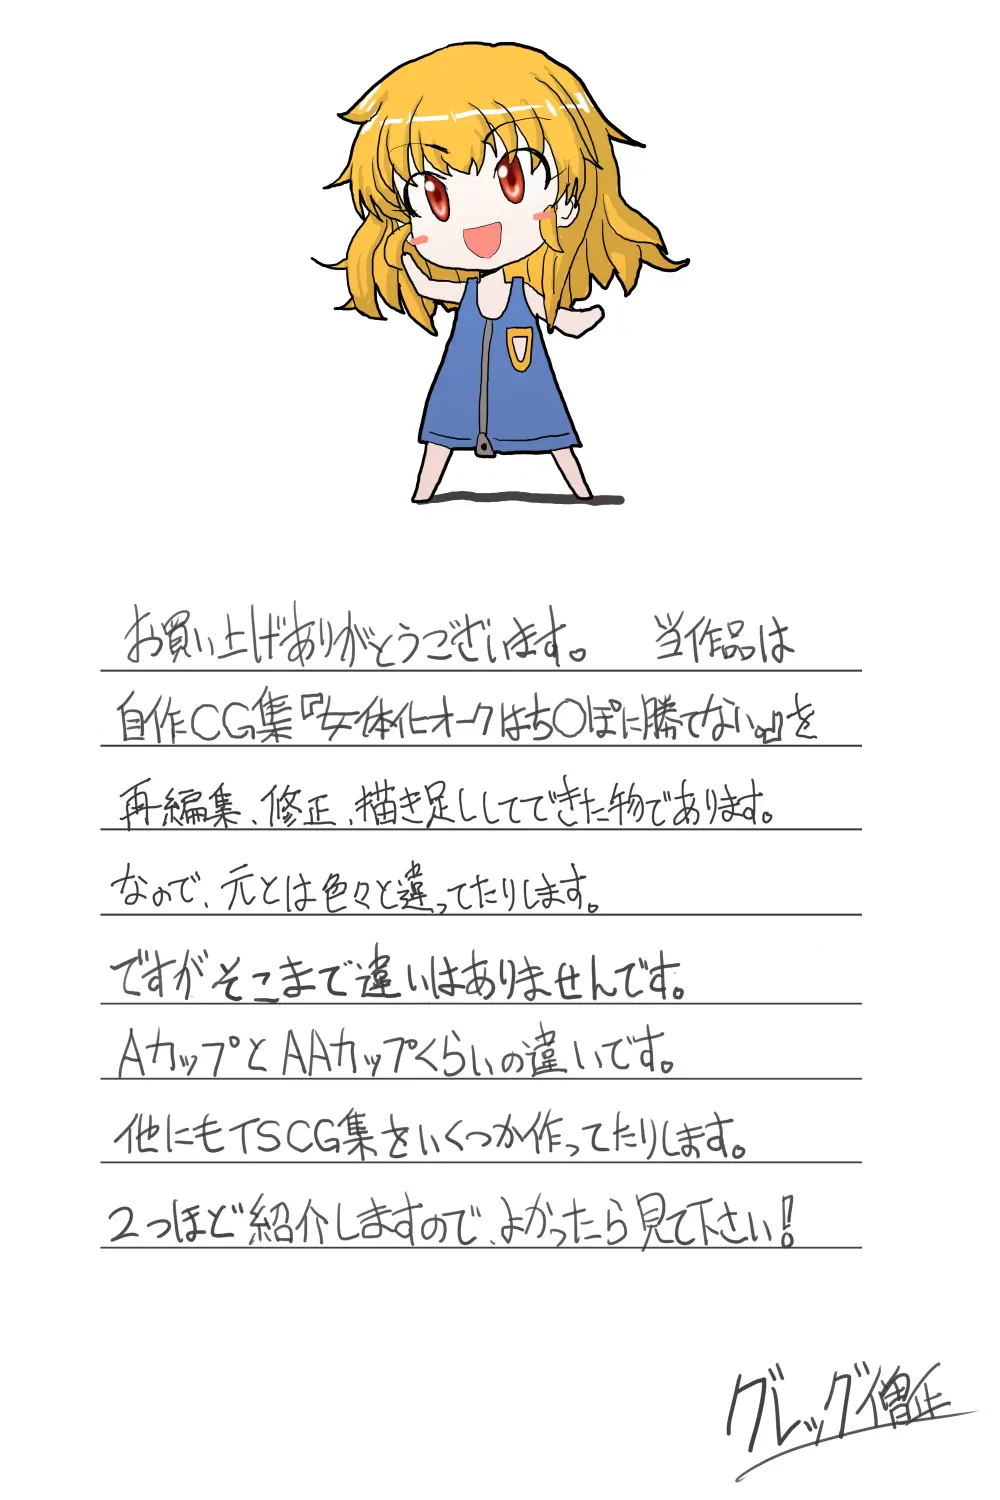 お買い上げありがとうございます。 当作品は
自作CG集『女体化オークはち〇ぽに勝てない。』を
再編集、修正、描き足ししてできた物であります。
なので、元とは色々と違ってたりします。
ですがそこまで違いはありませんです。
AカップとAAカップくらいの違いです。
他にもTSCG集をいくつか作ってたりします。
2つほど紹介しますので、よかったら見て下さい!
グレッグ僧正